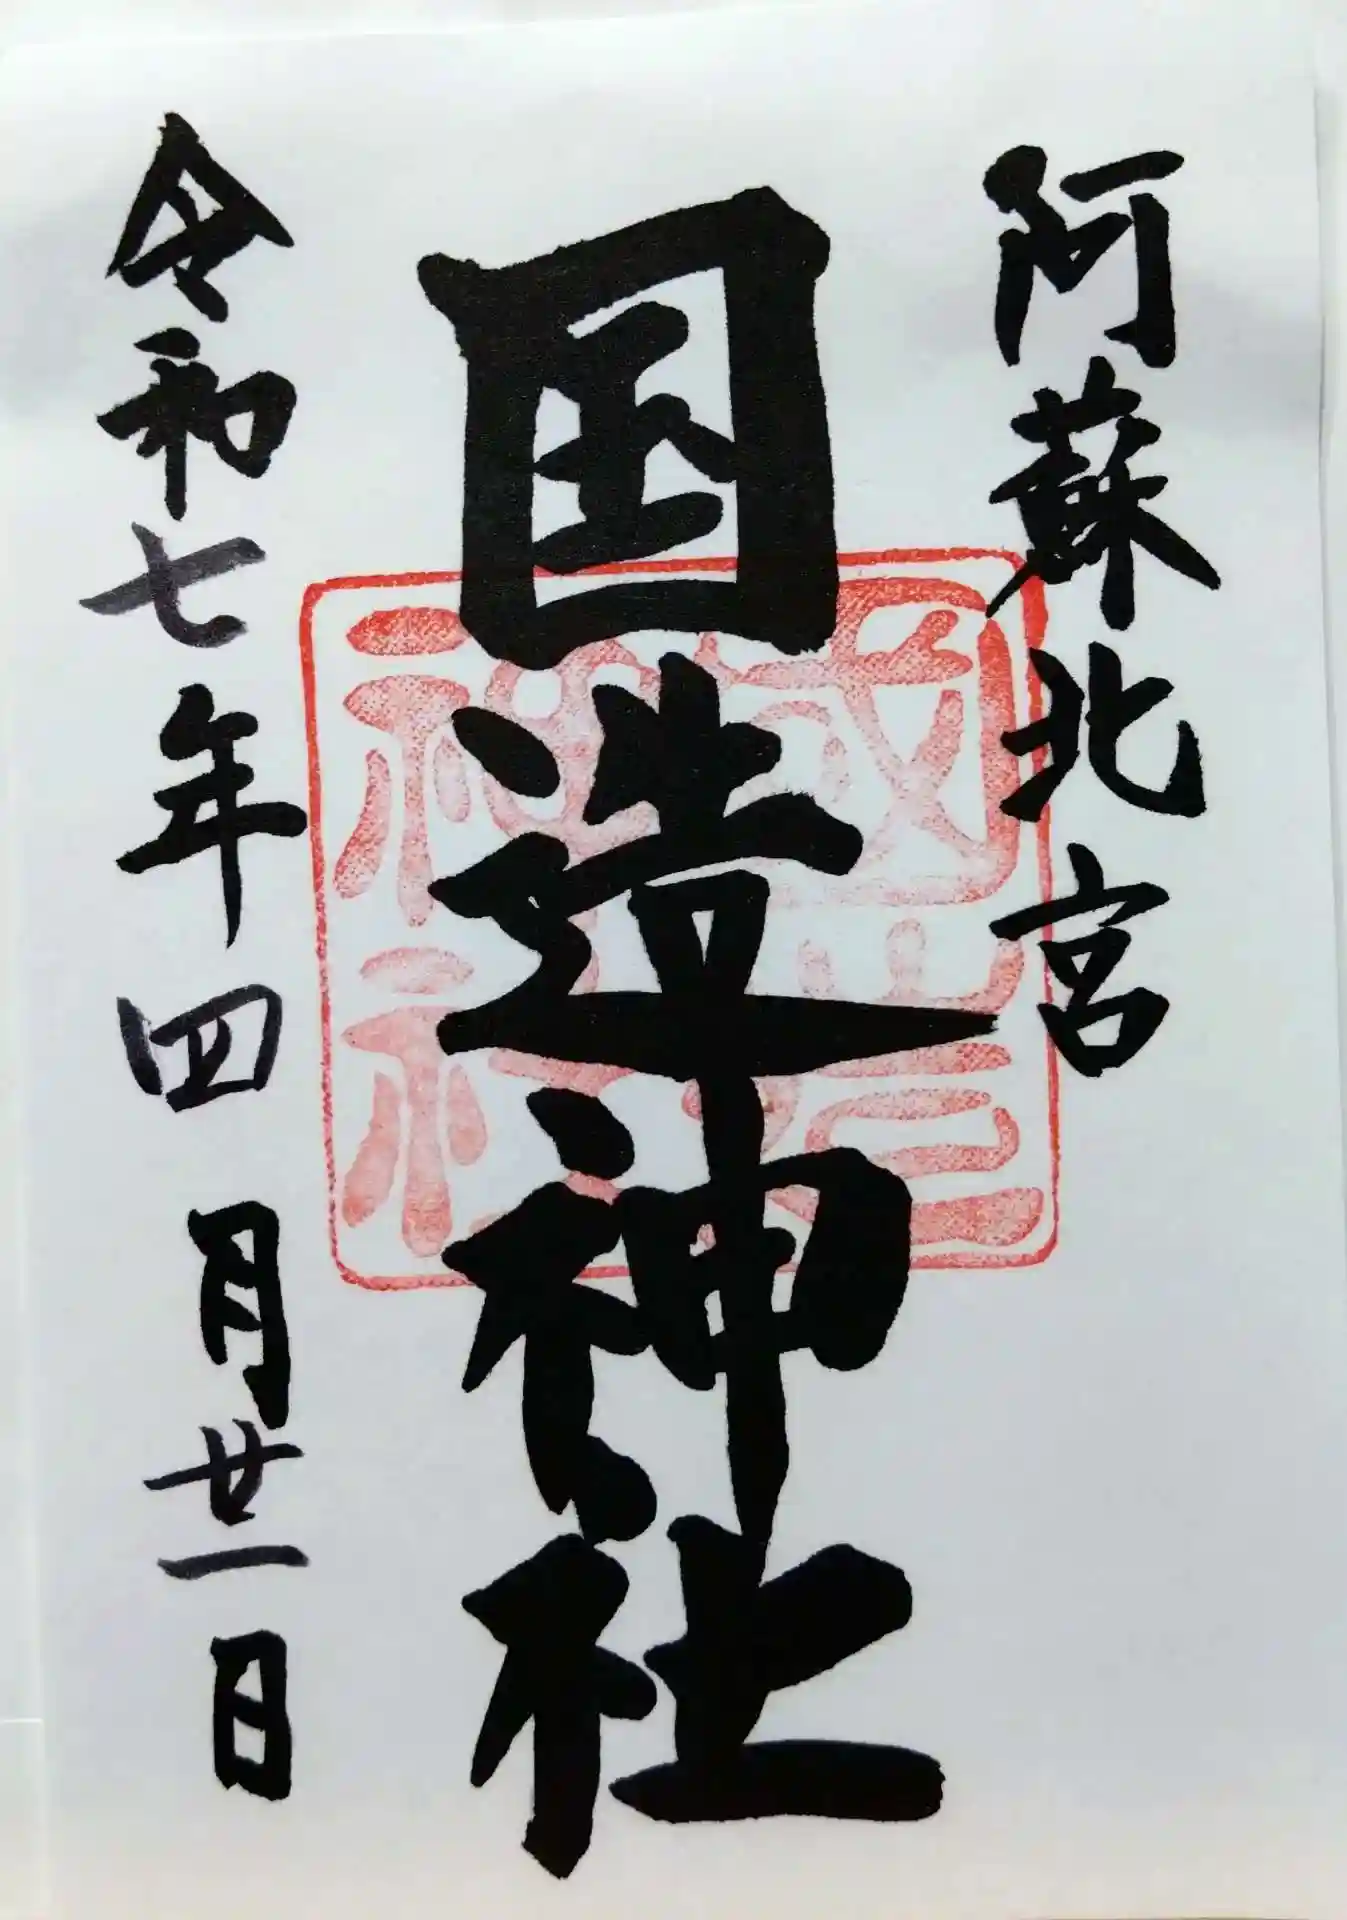 阿蘇北宮
国造神社
令和七年四月廿一日
國造
神社